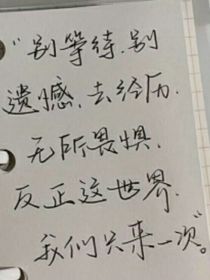 “别等待.别
遗憾.去经历.
无所畏惧.
反正这世界.
我们只来一次”。